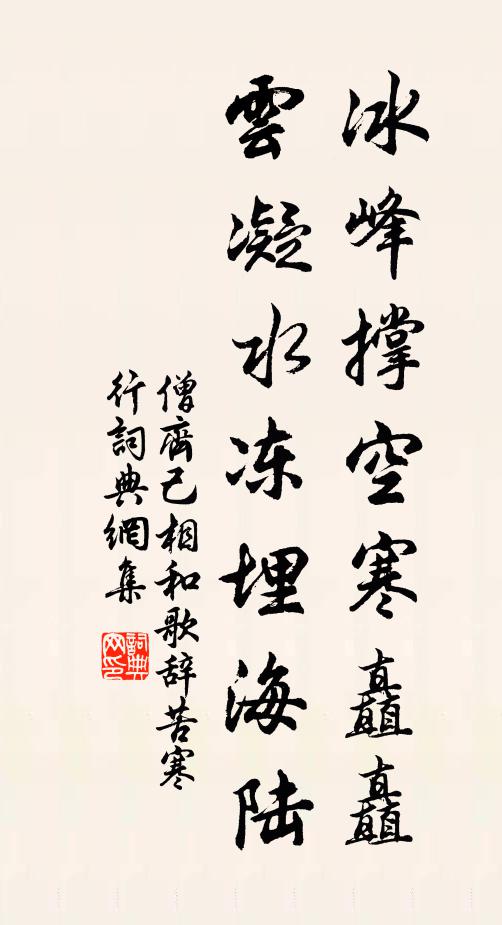 冰峰撑空寒矗矗
雲凝水冻埋海陆
僧齊己相和歌辞苦寒
行詞典網集
詞典
网印